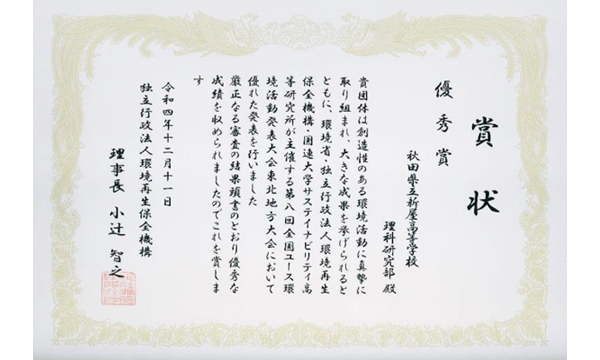 賞状
優秀賞
秋田県立新屋高等学校
理科研究部 殿
貴団体は創造性のある環境活動に真摯に
取り組まれ、大きな成果を挙げられると
ともに、環境省・独立行政法人環境再生
保全機構・国連大学サステイナビリティ高
等研究所が主催する第八回全国ユース環
境活動発表大会東北地方大会において
優れた発表を行いました
厳正なる審査の結果頭書のとおり優秀な
成績を収められましたのでこれを賞しま
す
令和四年十二月十一日
独立行政法人環境再生保全機構
理事長 小辻 智之